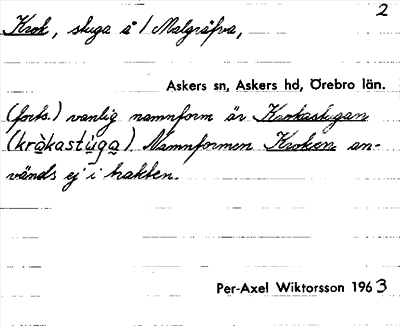 2
Krok, stuga å 1 Malgräfva,
Askers sn, Askers hd, Örebro län.
(forts.) vanlig namnform är Krokastugan
(kråkastuga). Namnformen Kroken an-
vänds ej i trakten.
Per-Axel Wiktorsson 1963